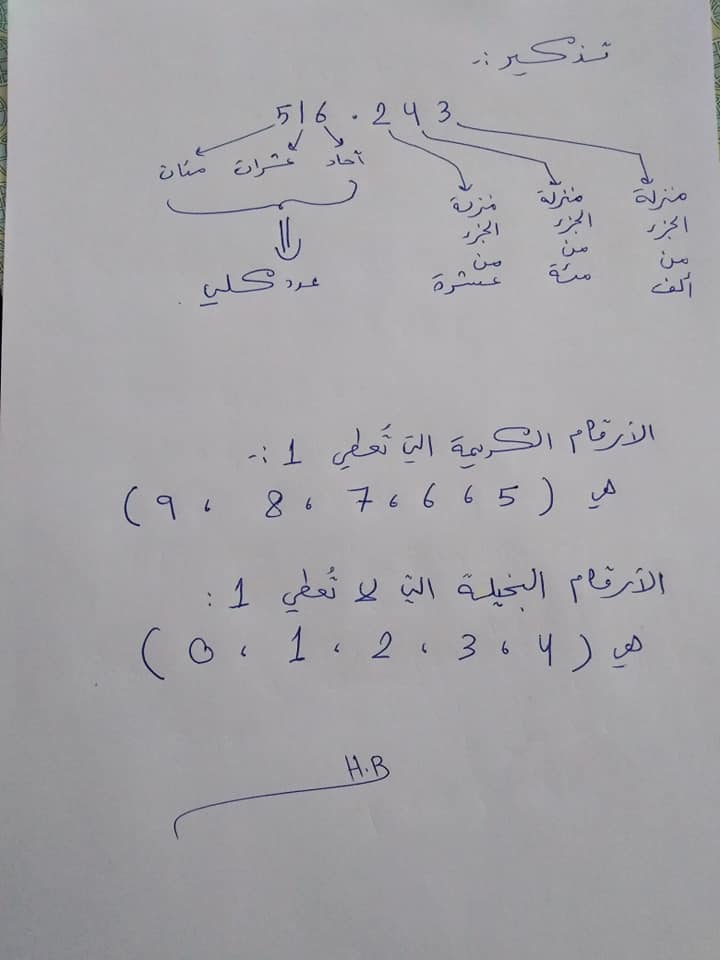 تذكير :-
516.243
آحاد عشرات مئات
عدد كلي
منزلة الجزء من عشرة
منزلة الجزء من مئة
منزلة الجزء من ألف
الأرقام الكريمة التي تُعطي 1 :-
هي ( 5 ، 6 ، 7 ، 8 ، 9 )
الأرقام البخيلة التي لا تُعطي 1 :
هي ( 4 ، 3 ، 2 ، 1 ، 0 )
H.B